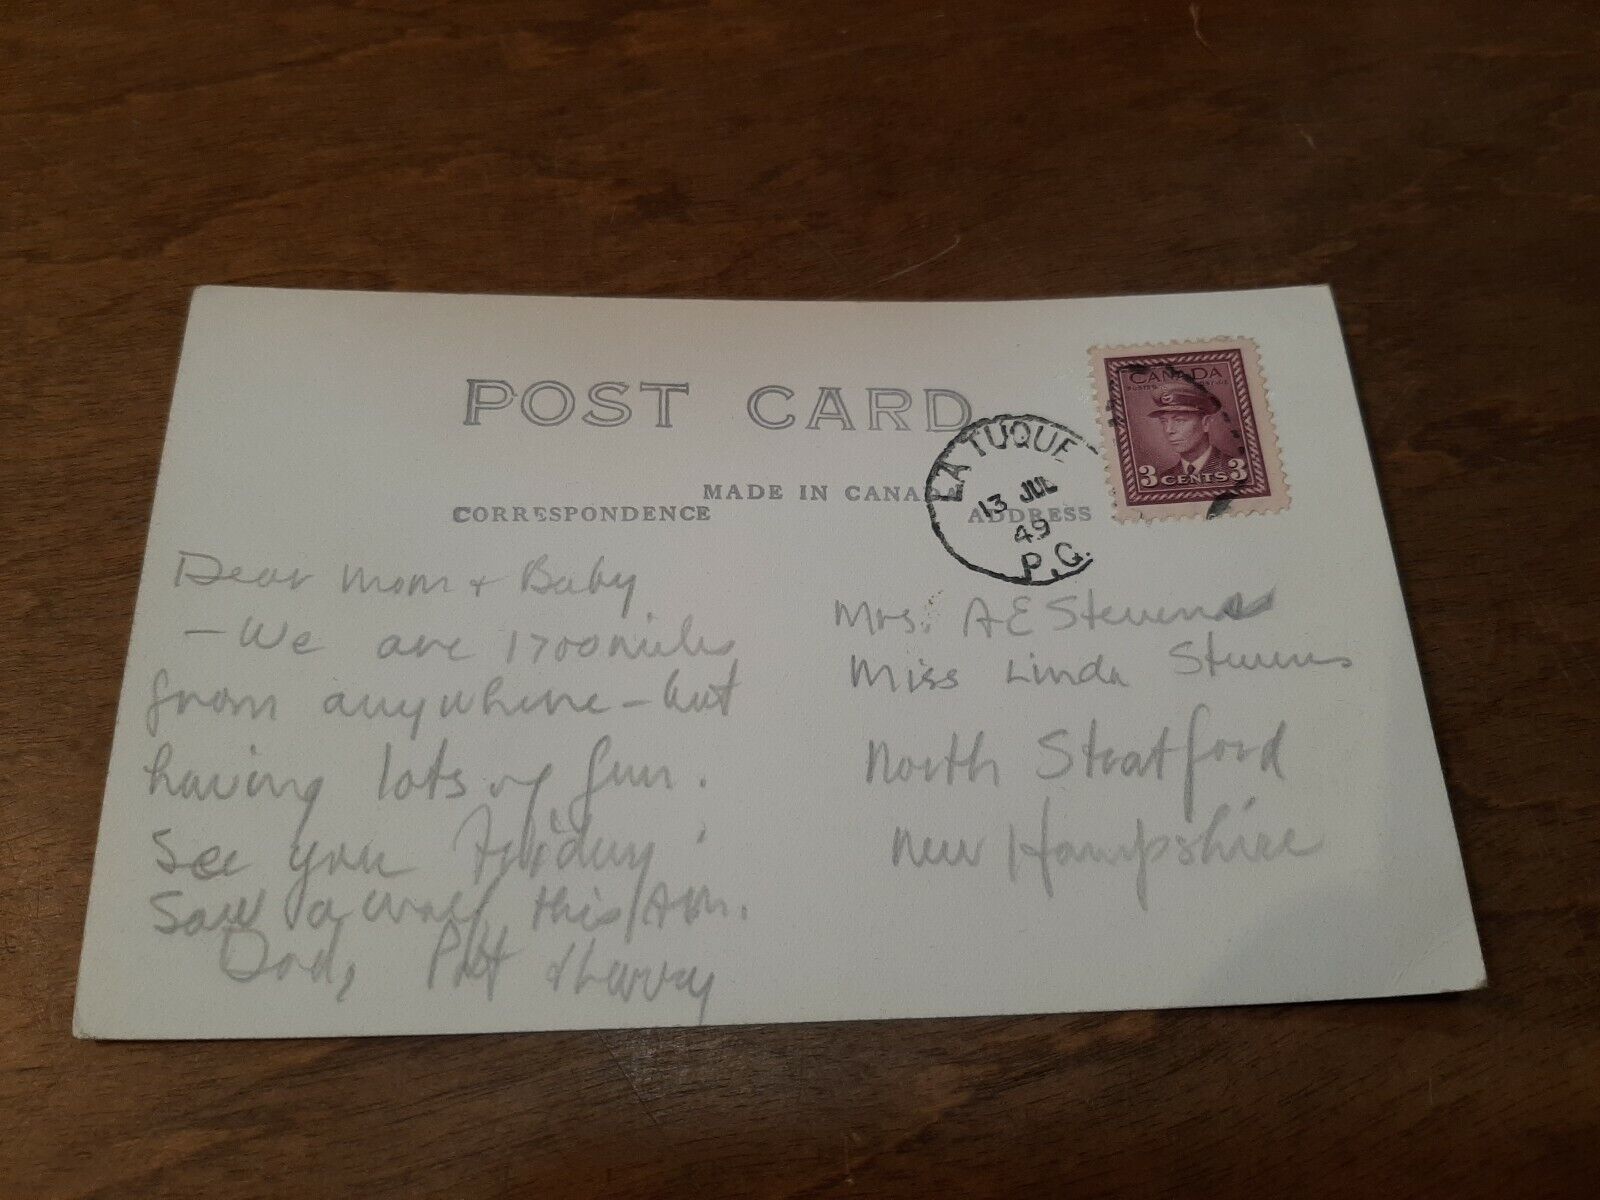 POST CARD
MADE IN CANADA
CORRESPONDENCE
ADDRESS
LA TUQUE
13 JUL
49
P.Q.
CANADA
3 CENTS 3
Dear Mom + Baby
- We are 1700 miles
from anywhere - but
having lots of fun.
See you Friday
Saw a wolf this A.m.
Dad, Pat & Larry
Mrs. A E Stevens
Miss Linda Stevens
North Stratford
New Hampshire